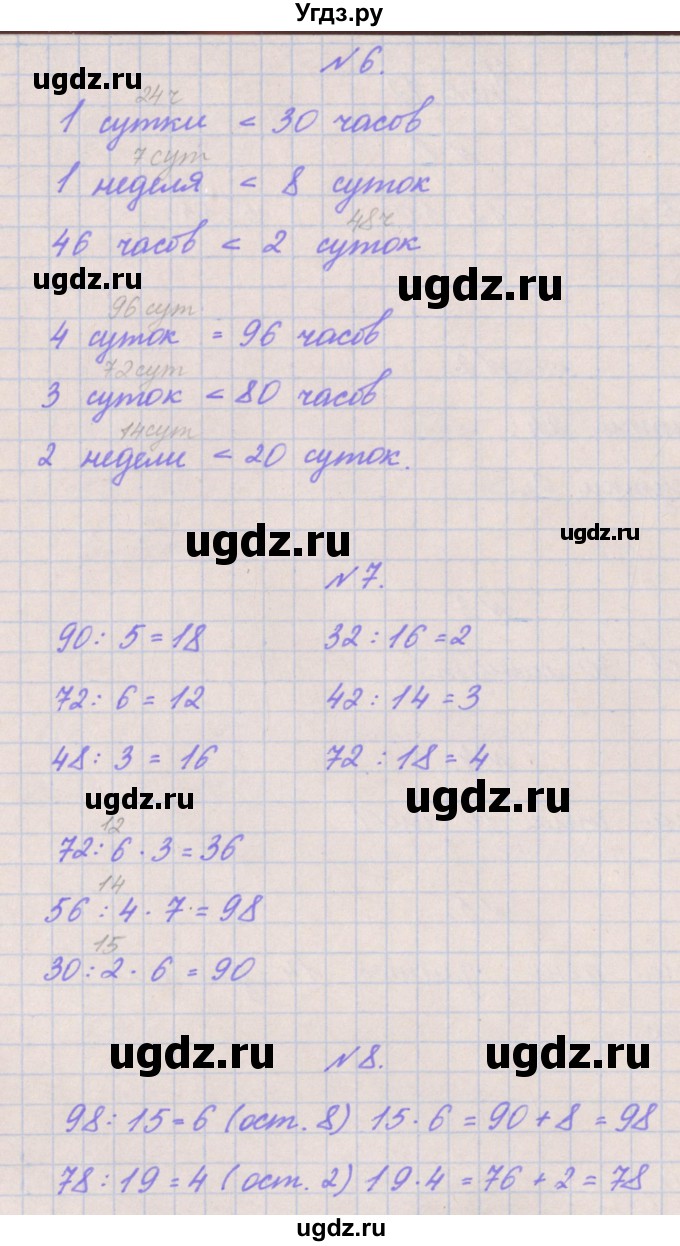 Угдз.ру
ugdz.ru
№6.
24ч
1 сутки < 30 часов
7 сут
1 неделя < 8 суток
48ч
46 часов < 2 суток
ugdz.ru
ugdz.ru
96 сут
4 суток = 96 часов
72 сут
3 суток < 80 часов
14 сут
2 недели < 20 суток.
ugdz.ru
ugdz.ru
№7.
90 : 5 = 18 32 : 16 = 2
72 : 6 = 12 42 : 14 = 3
48 : 3 = 16 72 : 18 = 4
ugdz.ru
ugdz.ru
12
72 : 6 · 3 = 36
14
56 : 4 · 7 = 98
15
30 : 2 · 6 = 90
ugdz.ru
№8.
ugdz.ru
98 : 15 = 6 (ост. 8) 15 · 6 = 90 + 8 = 98
78 : 19 = 4 (ост. 2) 19 · 4 = 76 + 2 = 78
ugdz.ru